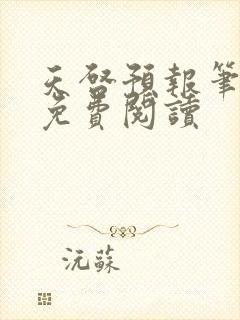 天啓預報筆
免費閱讀
沅蘇